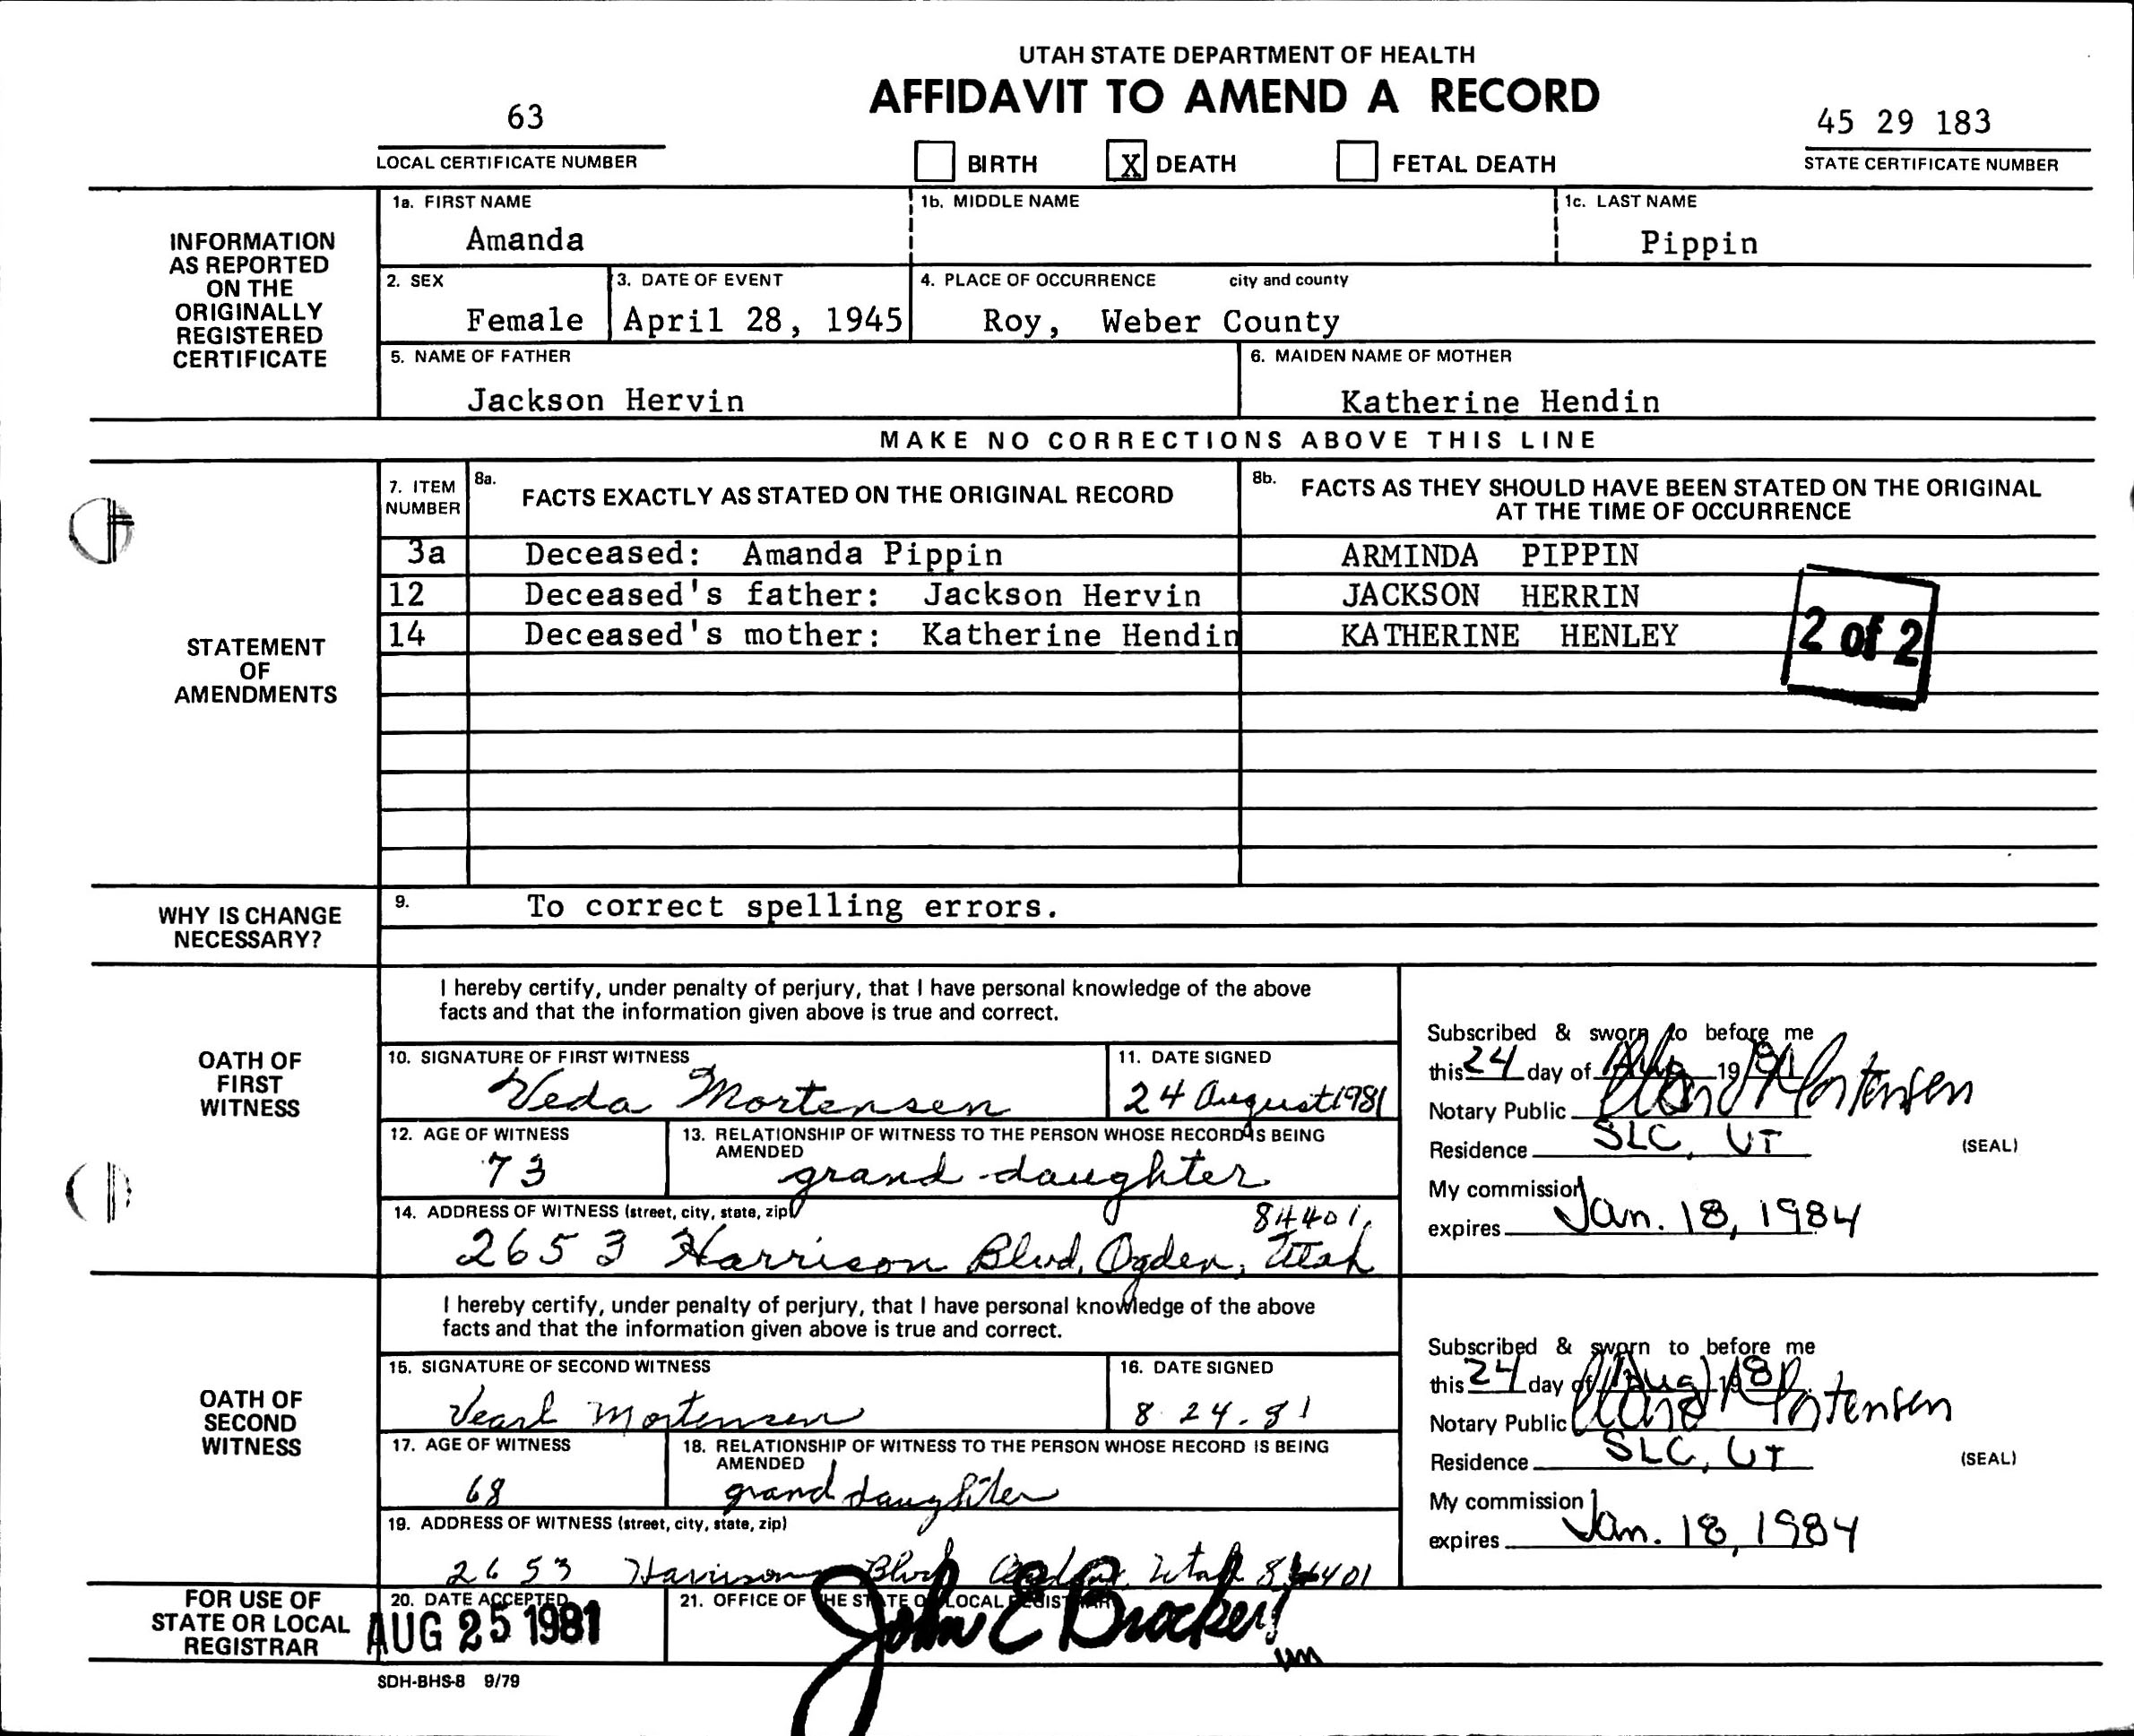 UTAH STATE DEPARTMENT OF HEALTH
AFFIDAVIT TO AMEND A RECORD
63
LOCAL CERTIFICATE NUMBER
BIRTH X DEATH FETAL DEATH
45 29 183
STATE CERTIFICATE NUMBER
INFORMATION
AS REPORTED
ON THE
ORIGINALLY
REGISTERED
CERTIFICATE
1a. FIRST NAME
Amanda
1b. MIDDLE NAME
1c. LAST NAME
Pippin
2. SEX
Female
3. DATE OF EVENT
April 28, 1945
4. PLACE OF OCCURRENCE city and county
Roy, Weber County
5. NAME OF FATHER
Jackson Hervin
6. MAIDEN NAME OF MOTHER
Katherine Hendin
MAKE NO CORRECTIONS ABOVE THIS LINE
STATEMENT
OF
AMENDMENTS
7. ITEM
NUMBER
8a.
FACTS EXACTLY AS STATED ON THE ORIGINAL RECORD
8b.
FACTS AS THEY SHOULD HAVE BEEN STATED ON THE ORIGINAL
AT THE TIME OF OCCURRENCE
3a Deceased: Amanda Pippin ARMINDA PIPPIN
12 Deceased's father: Jackson Hervin JACKSON HERRIN
14 Deceased's mother: Katherine Hendin KATHERINE HENLEY
2 of 2
WHY IS CHANGE
NECESSARY?
9. To correct spelling errors.
OATH OF
FIRST
WITNESS
I hereby certify, under penalty of perjury, that I have personal knowledge of the above
facts and that the information given above is true and correct.
10. SIGNATURE OF FIRST WITNESS
Veda Mortensen
11. DATE SIGNED
24 August 1981
12. AGE OF WITNESS
73
13. RELATIONSHIP OF WITNESS TO THE PERSON WHOSE RECORD IS BEING
AMENDED
grand-daughter
14. ADDRESS OF WITNESS (street, city, state, zip)
84401,
2653 Harrison Blvd, Ogden, Utah
Subscribed & sworn to before me
this 24 day of Aug 19 81
Notary Public Mortensen
Residence SLC, UT
(SEAL)
My commission
expires Jan. 18, 1984
OATH OF
SECOND
WITNESS
I hereby certify, under penalty of perjury, that I have personal knowledge of the above
facts and that the information given above is true and correct.
15. SIGNATURE OF SECOND WITNESS
Vearl Mortensen
16. DATE SIGNED
8 24-81
17. AGE OF WITNESS
68
18. RELATIONSHIP OF WITNESS TO THE PERSON WHOSE RECORD IS BEING
AMENDED
grand daughter
19. ADDRESS OF WITNESS (street, city, state, zip)
2653 Harrison Blvd Ogden, Utah 84401
Subscribed & sworn to before me
this 24 day of Aug 19 81
Notary Public Mortensen
Residence SLC, UT
(SEAL)
My commission
expires Jan. 18, 1984
FOR USE OF
STATE OR LOCAL
REGISTRAR
20. DATE ACCEPTED
AUG 25 1981
21. OFFICE OF THE STATE OR LOCAL REGISTRAR
John E Brockert
SDH-BHS-8 9/79